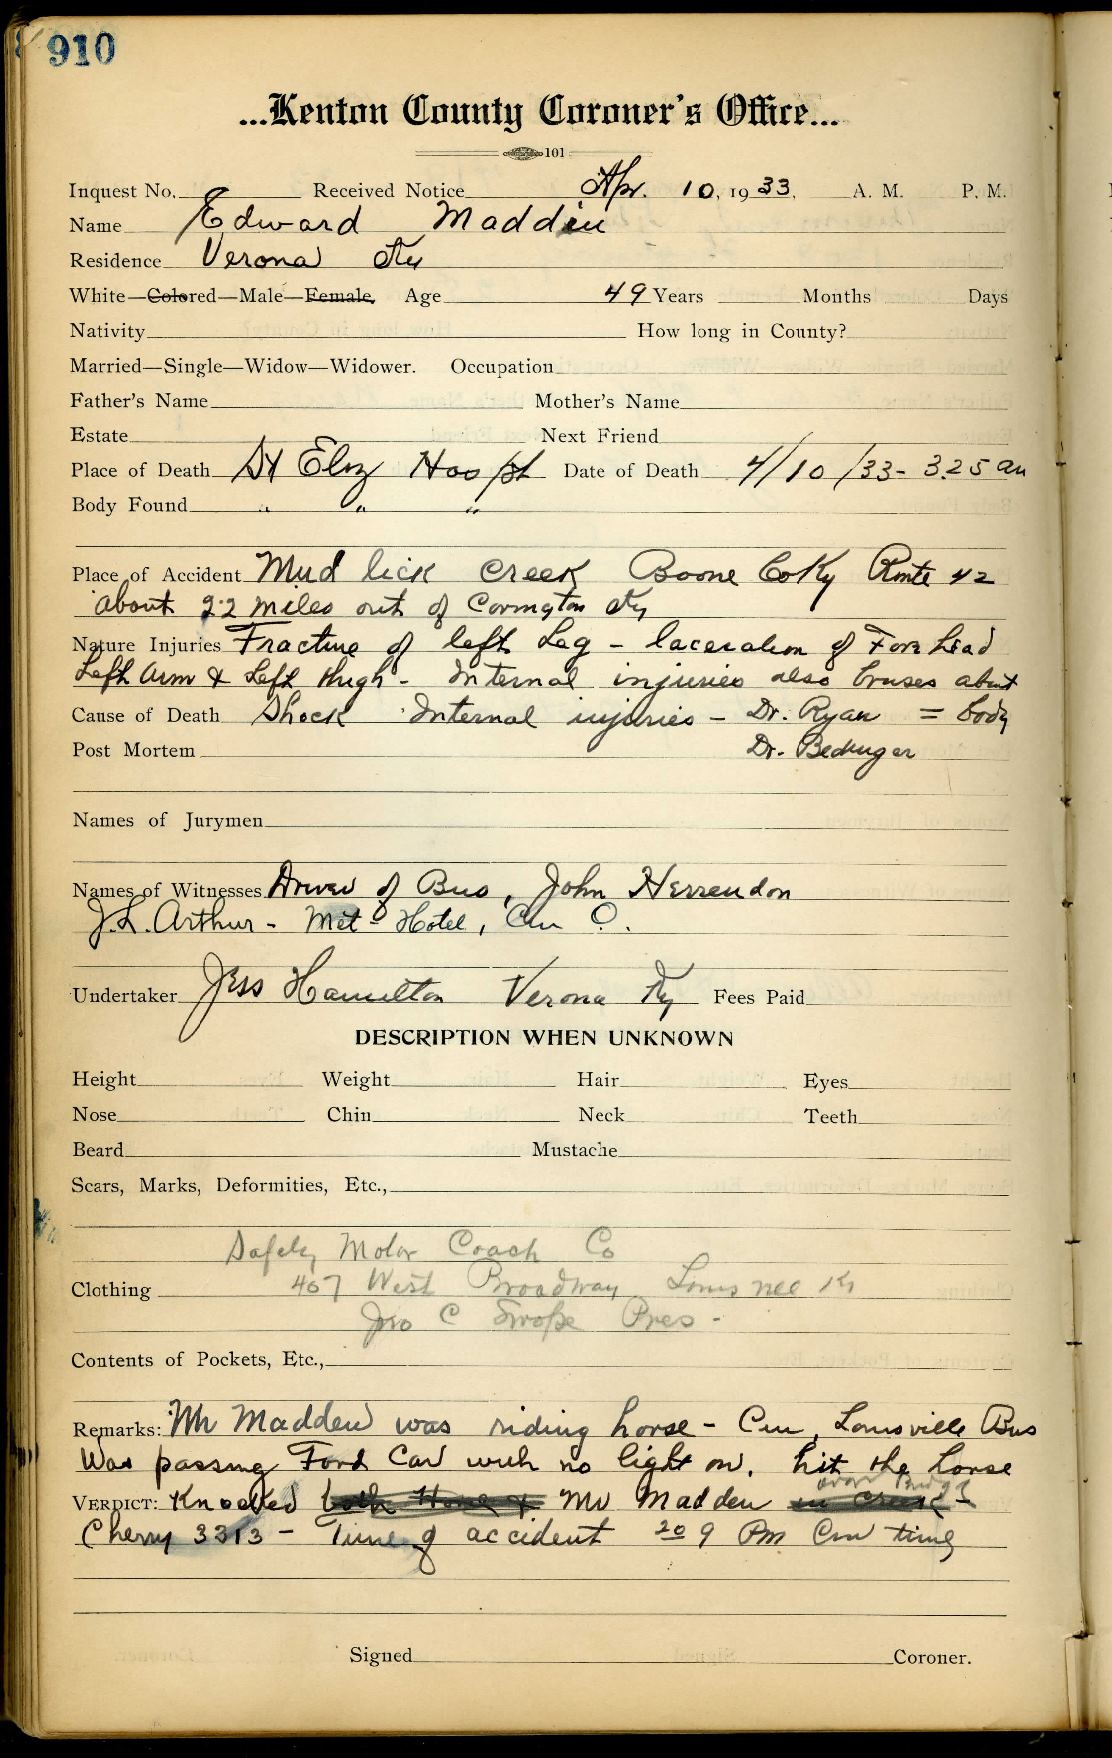 910
...Kenton County Coroner's Office...
101
Inquest No. Received Notice Apr. 10, 1933. A. M. P. M.
Name Edward Madden
Residence Verona Ky
White—Colored—Male—Female. Age 49 Years Months Days
Nativity How long in County?
Married—Single—Widow—Widower. Occupation
Father's Name Mother's Name
Estate Next Friend
Place of Death St Eliz Hospt Date of Death 4/10/33- 3.25 am
Body Found " " "
Place of Accident Mud lick Creek Boone Co Ky Route 42
about 22 miles out of Covington Ky
Nature Injuries Fracture of left Leg - laceration of Forehead
Left Arm & Left thigh - Internal injuries also bruses about
Cause of Death Shock Internal injuries - Dr. Ryan = body
Post Mortem Dr. Bedinger
Names of Jurymen
Names of Witnesses Driver of Bus, John Herrendon
J.L. Arthur - Met - Hotel, Cin O.
Undertaker Jess Hamilton Verona Ky Fees Paid
DESCRIPTION WHEN UNKNOWN
Height Weight Hair Eyes
Nose Chin Neck Teeth
Beard Mustache
Scars, Marks, Deformities, Etc.,
Safety Motor Coach Co
Clothing 407 West Broadway Louisville Ky
Jno C Swope Pres -
Contents of Pockets, Etc.,
Remarks: Mr Madden was riding horse - Cin, Louisville Bus
Was passing Ford Car with no light on. hit the horse
over Bridge
VERDICT: Knocked both Horse & Mr Madden in Creek -
Cherry 3313 - Time of accident 20 9 Pm Cin time
Signed Coroner.